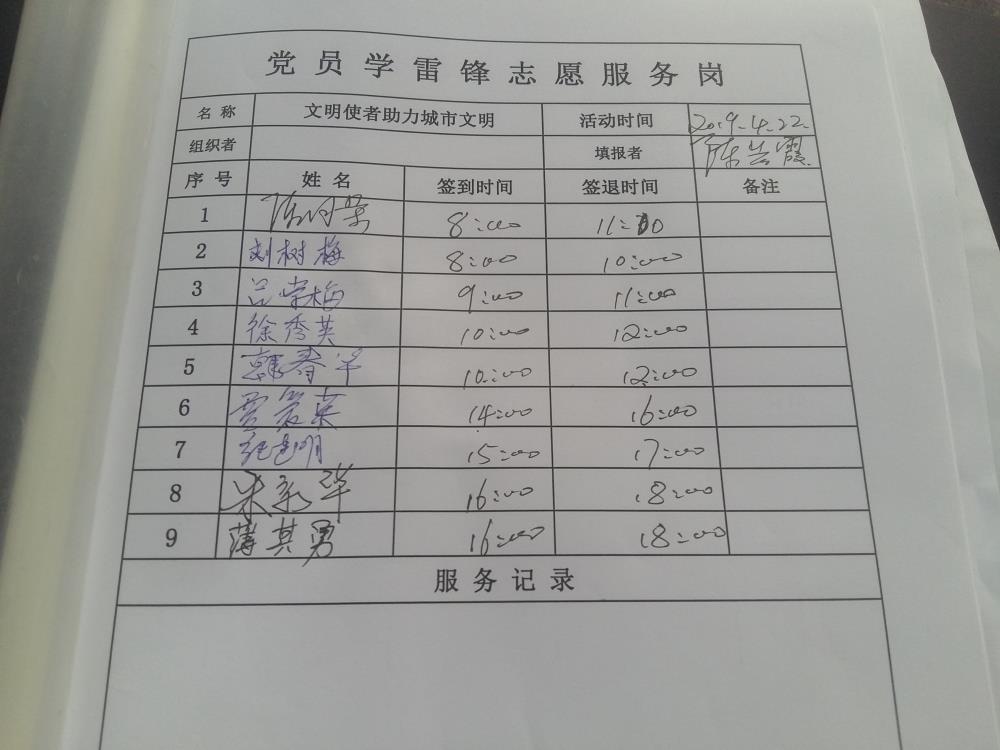 党员学雷锋志愿服务岗
名称 文明使者助力城市文明 活动时间 2019.4.22
组织者 填报者 陈兰霞
序号 姓名 签到时间 签退时间 备注
1 8:00 11:10
2 刘树梅 8:00 10:00
3 吕荣梅 9:00 11:00
4 徐秀英 10:00 12:00
5 韩春华 10:00 12:00
6 14:00 16:00
7 15:00 17:00
8 16:00 18:00
9 薄其勇 16:00 18:00
服务记录